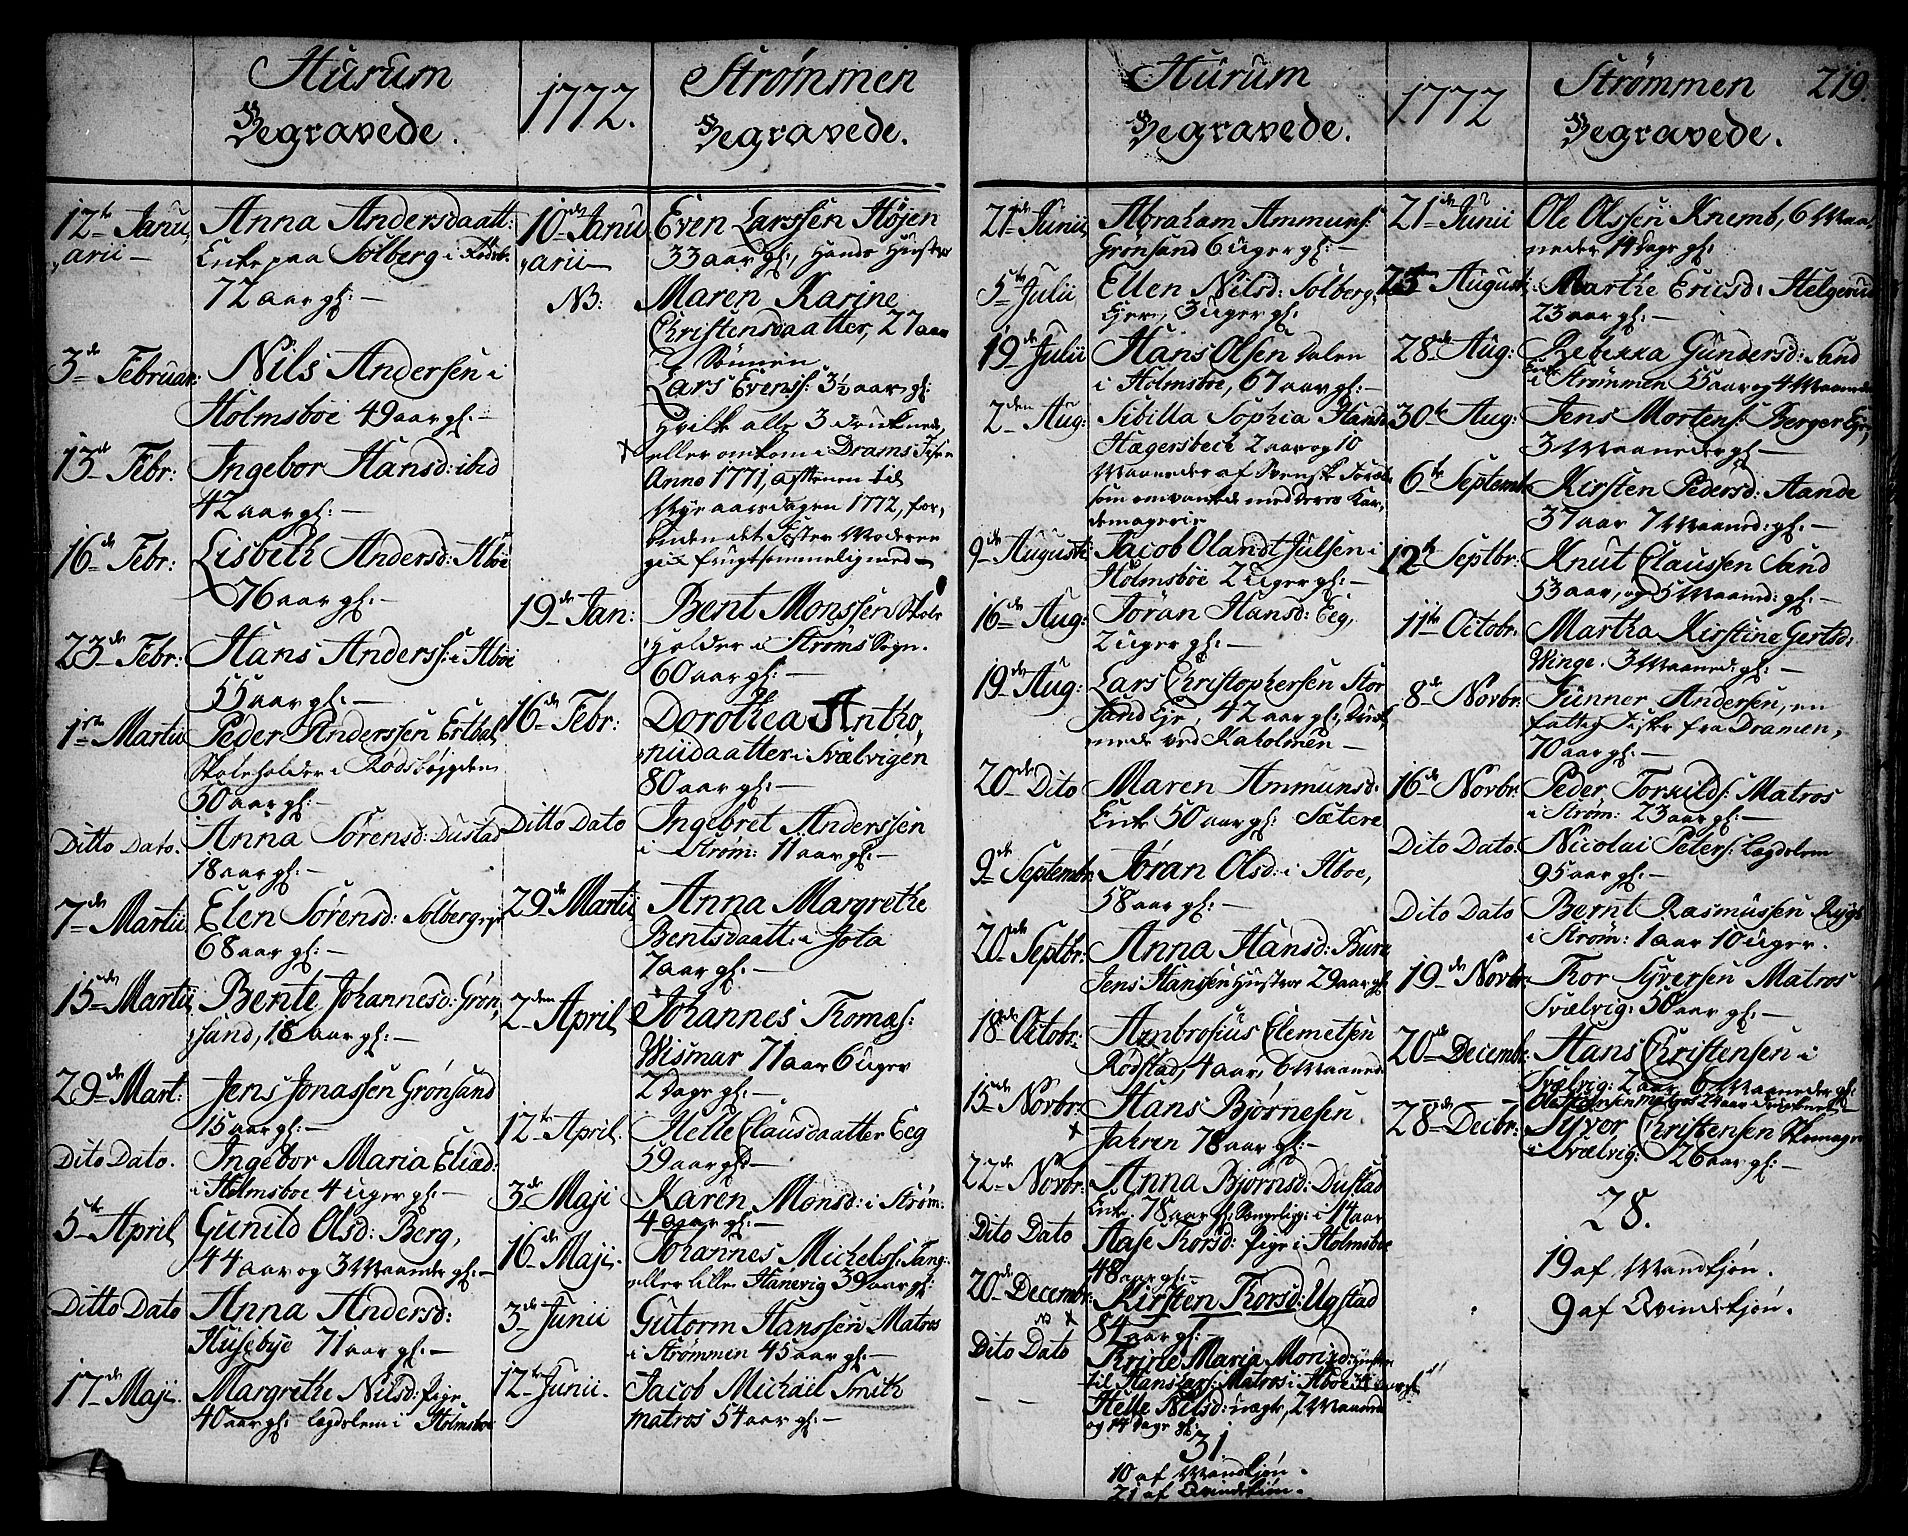 Hurum
Begravede.
12te Janu
arii —
Anna Andersdaatt:
Enke paa Solberg i Rødsb:
72 aar gl: —
3de Februar:
Nils Andersen i
Holmsboe 49 aar gl: —
13de Febr:
Ingebor Hansd: ibid
42 aar gl: —
16de Febr:
Lisbeth Andersd: Aboe
76 aar gl: —
23de Febr:
Hans Anderss: i Aboe
55 aar gl: —
1ste Martii
Peder Anderssen
Skoleholder i Rødsbøygden
50 aar gl: —
Ditto Dato.
Anna Sørensd: Dustad
18 aar gl: —
7de Martii
Elen Sørensd: Solberg
68 aar gl: —
15de Martii
Bente Johannesd: Grøn,
sand, 18 aar gl: —
29de Mart:
Jens Jonassen Grønsand
15 aar gl: —
Dito Dato.
Ingebor Maria Eliæd:
i Holmsboe 4 Uger gl: —
5te April
Gunild Olsd: Berg,
44 aar og 3 Maaneder gl: —
Ditto Dato
Anna Andersd:
Husebye 71 aar gl: —
17de Maji
Margrethe Nilsd: Pige
40 aar gl: Lægdslem i Holmsboe
1772.
Strømmen
Begravede.
10de Janu
arii —
Even Larssen Højen
33 aar gl:, Hands Hustroe
NB:
Maren Karine
Christensdaatter, 27 aar
& Sønnen
Lars Evenss: 3½ aar gl:
hvilke alle 3 druknede,
eller omkom i Drams
Anno 1771, aftenen til
Nye aarsdagen 1772, for,
uden det Foster Moderen
gik frugtsommelig med —
19de Jan:
Bent Monssen Skole
holder i Strøms Sogn.
60 aar gl: —
16de Febr:
Dorothea Antho,
niidaatter i Svælvigen
80 aar gl: —
Ditto Dato
Ingebret Anderssen
i Strøm: 11 aar gl: —
29de Martii
Anna Margrethe
Bentsdaatt: i Jota
7 aar gl: —
2den April
Johannes Thomæs:
Wismar 71 aar 6 Uger
2 Dage gl: —
12te April.
Helle Clausdaatter Eeg
59 aar gl: —
3de Maji
Karen Monsd: i Strøm:
4 aar gl: —
16de Maji.
Johannes Michelss:
eller lille Hanevig 39 aar gl:
3de Junii
Gutorm Hanssen Matros
i Strømmen 45 aar gl: —
12te Junii.
Jacob Michàel Smith
matros 54 aar gl: —
Hurum
Begravede.
21de Junii,
Abraham Ammuns:
Grønsand 6 Uger gl: —
5te Julii
Ellen Nilsd: Solberg,
Ejer, 3 Uger gl: —
19de Julii
Hans Olsen Dalen
i Holmsboe, 67 aar gl: —
2den Aug:
Sibilla Sophia Hansd:
Hagersbech 2 aar og 10
Maaneder af Svensk
som omvankede med deres
9de Augusti
Jacob Olandt Julsen i
Holmsboe 2 Uger gl: —
16de Aug:
Joran Hansd: Eig,
2 Uger gl: —
19de Aug:
Lars Christophersen Stor
sand Eje, 42 aar gl:, druk
nede ved Kaholmen —
20de Dito
Maren Ammunsd:
Enke 50 aar gl: Sætere
9de Septembr:
Jøran Olsd: i Aboe,
58 aar gl: —
20de Septbr:
Anna Hansd:
Jens Hanssen Hustroe 29 aar gl:
18de Octobr:
Ambrosius Clemetsen
Rødstad, 4 aar, 6 Maaned:
15de Novbr:
Hans Bjørnesen
Jahren 78 aar gl: —
22de Novbr:
Anna Bjørnsd: Dustad
Enke. 78 aar gl: Sengeligg: i 14 aar
Dito Dato
Aase Thorsd: Pige i Holmsboe
48 aar gl: —
20de Decembr:
Kirsten Thorsd: Ugstad
84 aar gl: —
Dito Dato
Thrine Maria
til Hans Lars: Matros i Aboe
— —
Helle Nilsd: 2 Maaneder
og 14 dage gl:
31
10 af Mandkjøn.
21 af Qvindekjøn.
1772
Strømmen
Begravede.
219.
21de Junii
Ole Olssen Knemb, 6 Maa,
neder 14 dage gl:
23de Augusti
Marthe Ericsd: Helgerud
23 aar gl: —
28de Aug:
Rebekka Gundersd: Sand
Enke i Strømmen 55 aar og 4 Maaneder
30te Aug:
Jens Mortens: Berger Eje,
3 Maaneder gl: —
6te Septembr
Kirsten Pedersd: Aande
37 aar 7 Maaned: gl: —
12te Septbr:
Knut Claussen Sand
53 aar, og 5 Maaned: gl: —
11te Octobr.
Martha Kirstine Gertsd:
Winge. 3 Maaned: gl: —
8de Novbr.
Gunner Andersen, en
fattig Fisker fra Dramen,
70 aar gl: —
16de Novbr.
Peder Torkilds: Matros
i Strøm: 23 aar gl: —
Dito Dato.
Nicolai Peters: Lægdslem
95 aar gl: —
Dito Dato
Bernt Rasmussen
i Strøm: 1 aar 10 Uger.
19de Novbr
Thor Syversen Matros
Svælvig: 50 aar gl: —
20de Decembr.
Hans Christensen i
Svælvig: 2 aar 6 Maaneder gl:
28de Decbr:
Syver Christensen Skomager
i Svælvig: 26 aar gl: —
28.
19 af Mandkjøn.
9 af Qvindekjøn.